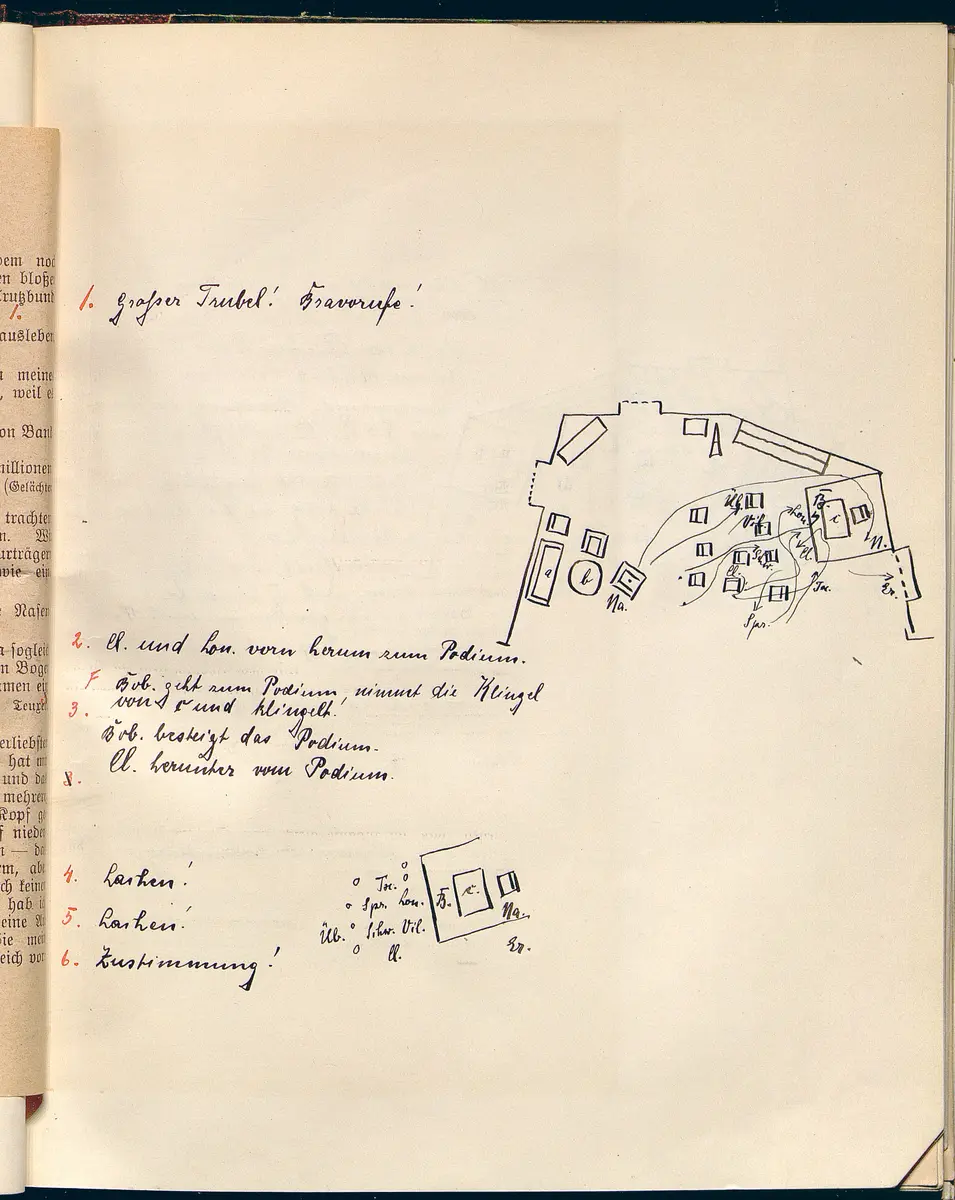 dem noc
en bloße
rutzbund
1.
ausleben
meine
, weil e
on Bank
millionen
(Gelächte
trachter
n. Wi
urträger
wie ein
Nasen
sogleic
n Boge
men ei
Teuxel
erliebste
hat m
und da
mehrer
Kopf g
f niede
n — da
rm, abe
ch keine
hab i
eine A
ie me
eich vor
1. Großer Trubel! Bravorufe!
Üb.
Vil.
B.
Lon.
c
N.
Cl.
a
b
Na.
Schw.
Cl.
Toc.
Er.
Spr.
2. Cl. und Lon. vorn herum zum Podium.
F Bob. geht zum Podium, nimmt die Klingel
3. von c und klingelt.
Bob. besteigt das Podium.
Cl. herunter vom Podium.
4. Lachen!
5. Lachen!
6. Zustimmung!
Toc.
Spr. Lon.
Üb. Schw. Vil.
Cl.
B. c.
Na.
Er.